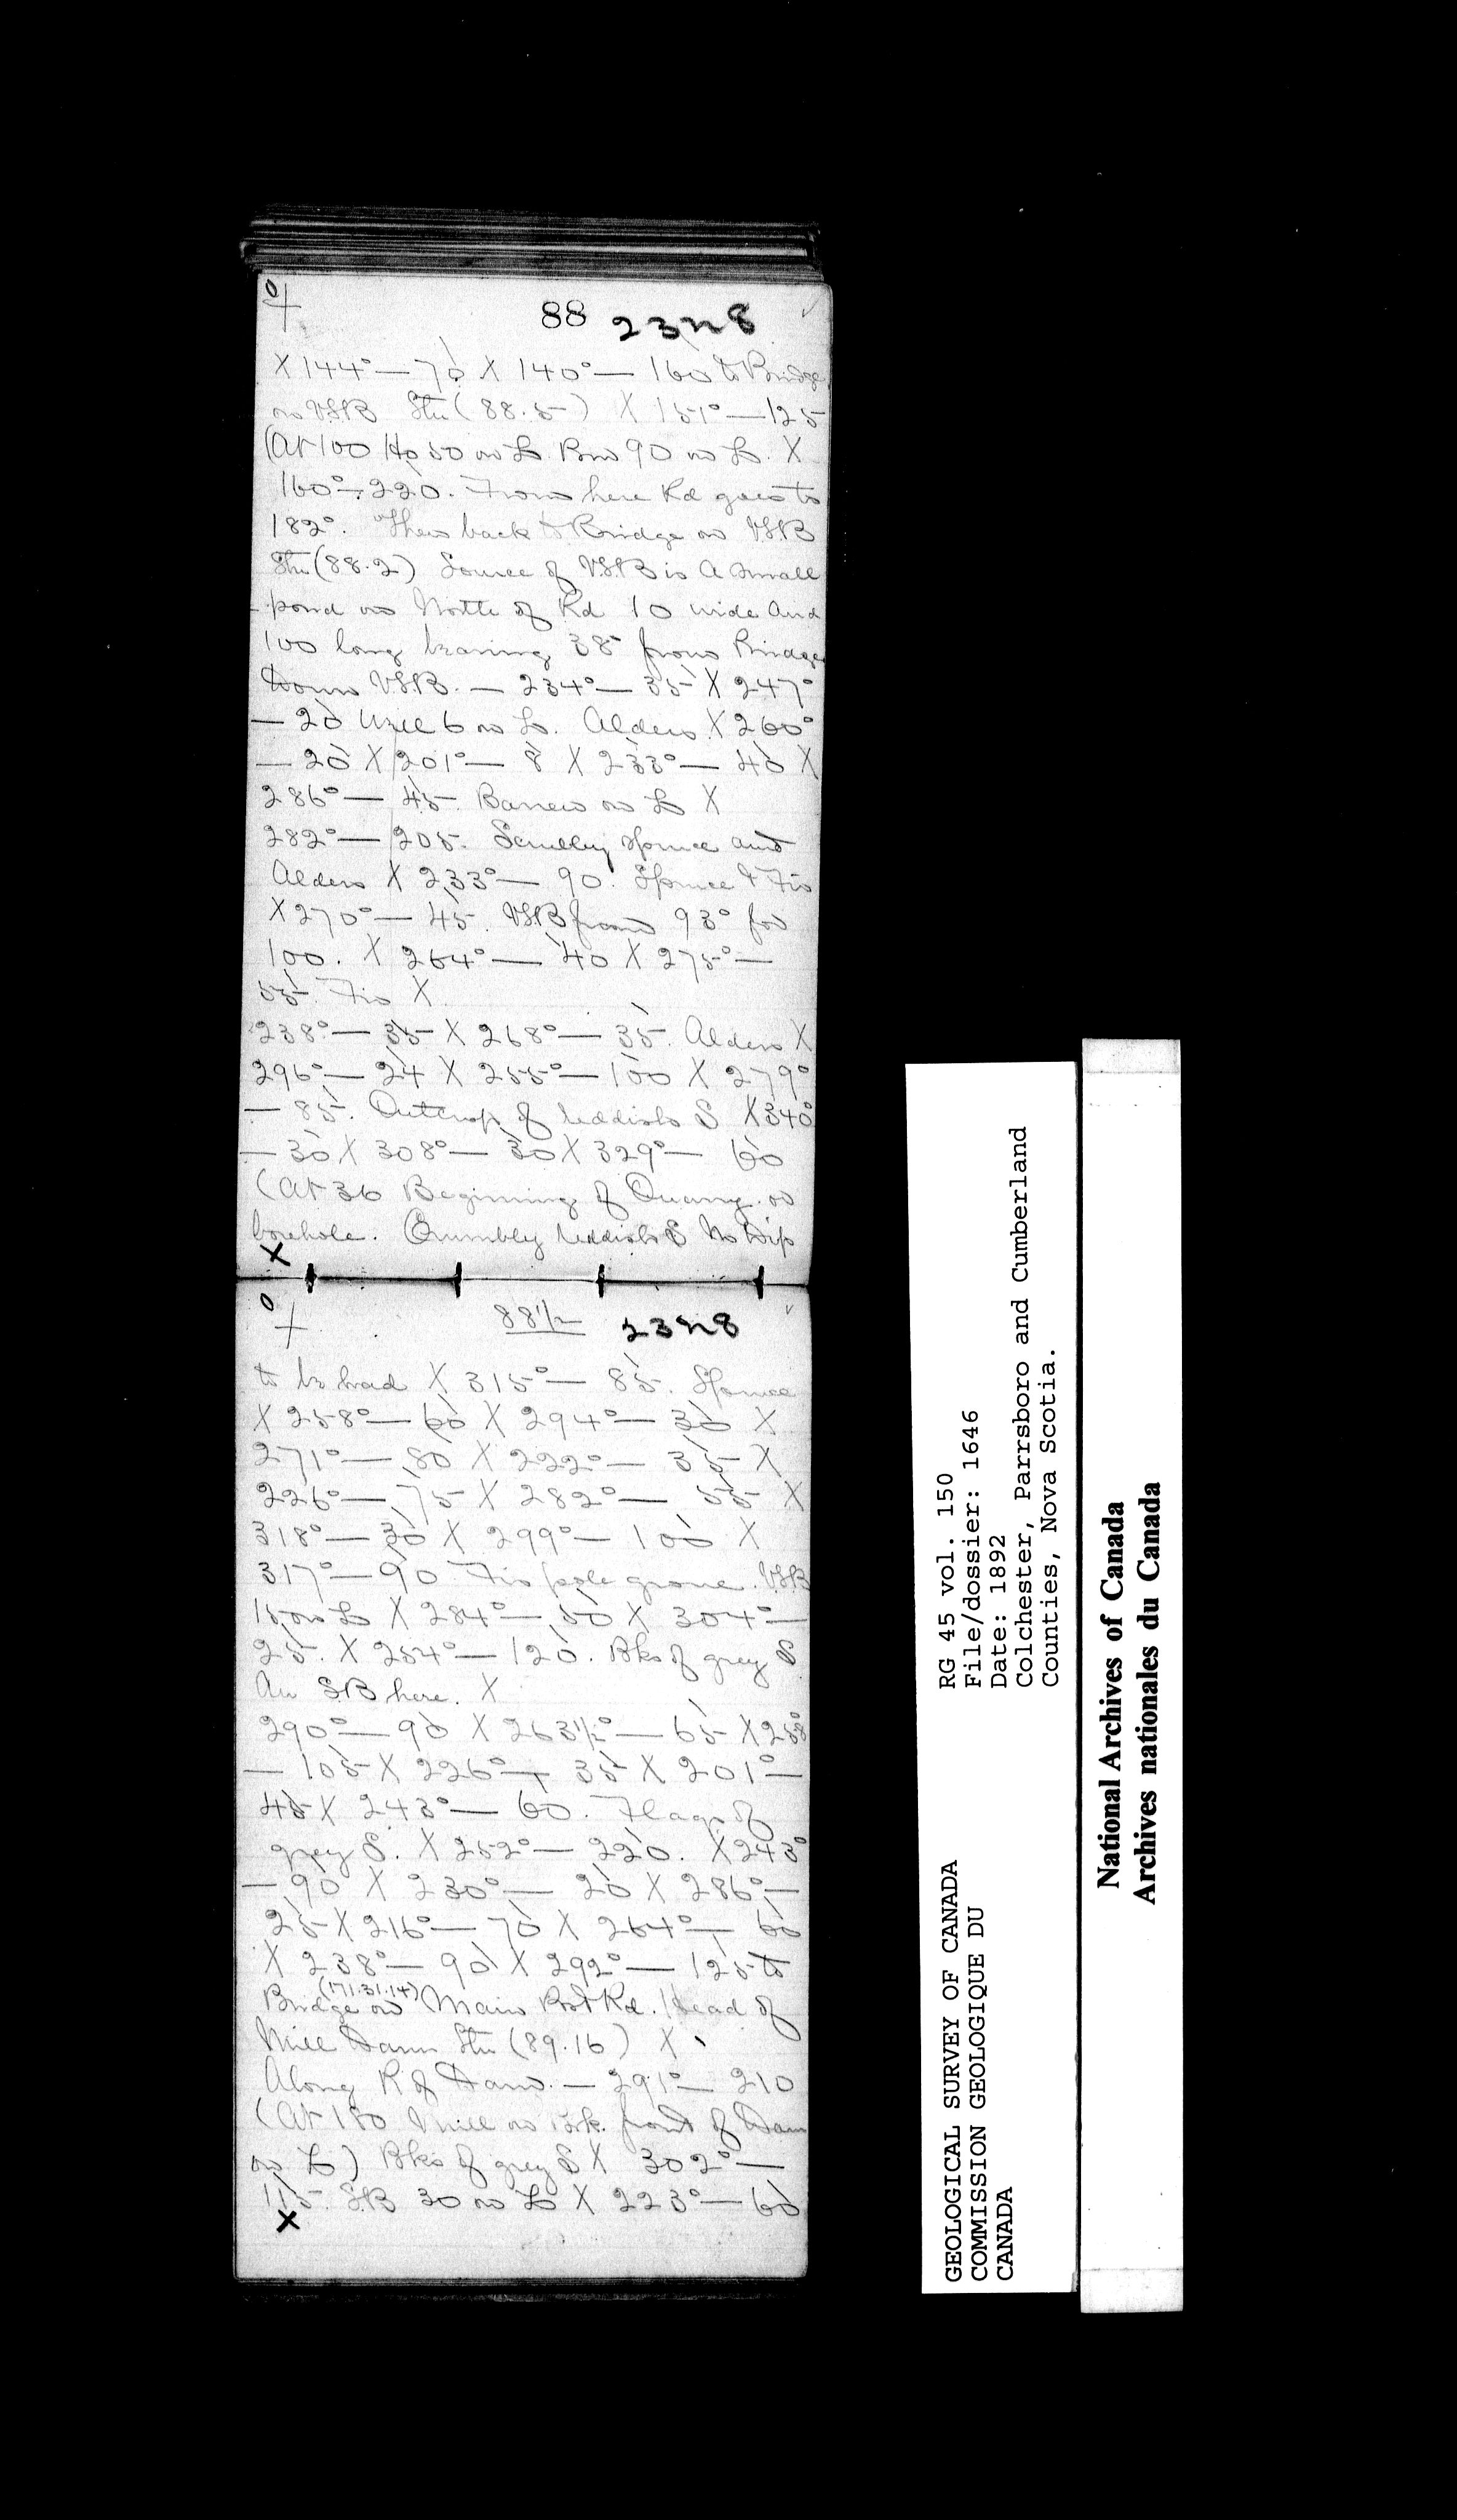 88 2328
X 144° — 70 X 140° — 160 to Bridge
on VSB Stn (88.5) X 151° — 125
(At 100 Ho 50 on L. Brn 90 on L. X
160° — 220. From here Rd goes to
182°. Then back to Bridge on VSB
Stn (88.2) Source of VSB is a small
pond on North of Rd 10 wide and
100 long bearing 38° from Bridge
Down VSB. — 234° — 35 X 247°
— 20 Well 6 on L. Alders X 260°
— 20 X 201° — 8 X 233° — 40 X
286° — 45. Barren on L X
282° — 205. Scrubby spruce and
Alders X 233° — 90. Spruce & Fir
X 270° — 45. VSB from 93° for
100. X 264° — 40 X 275° —
55. Fir X
238° — 35 X 268° — 35. Alders X
296° — 24 X 255° — 100 X 279°
— 85. Outcrop of reddish S X 340°
— 30 X 308° — 30 X 329° — 60
(At 36 Beginning of Quarry on
borehole. Crumbly reddish S No Dip
X
88 1/2 2328
to be had X 315° — 85. Spruce
X 258° — 60 X 294° — 30 X
271° — 80 X 222° — 35 X
226° — 75 X 282° — 55 X
318° — 30 X 299° — 100 X
317° — 90 Fir pole grove. VSB
15 on L X 284° — 50 X 304° —
25. X 254° — 120. Bks of grey S
An SB here. X
290° — 90 X 263 1/2° — 65 X 258°
— 105 X 226° — 35 X 201° —
45 X 243° — 60. Flags of
grey S. X 252° — 220. X 243°
— 90 X 230° — 20 X 286° —
25 X 216° — 70 X 264° — 60
X 238° — 90 X 292° — 125 to
(171.31.14)
Bridge on Main Post Rd. Head of
Mill Dam Stn (89.16) X
Along R of Dam. — 291° — 210
(At 180 mill on front of Dam
on L) Bks of grey S X 302° —
115. SB 30 on L X 223° — 60
X
RG 45 vol. 150
File/dossier: 1646
Date: 1892
Colchester, Parrsboro and Cumberland
Counties, Nova Scotia.
GEOLOGICAL SURVEY OF CANADA
COMMISSION GEOLOGIQUE DU
CANADA
National Archives of Canada
Archives nationales du Canada